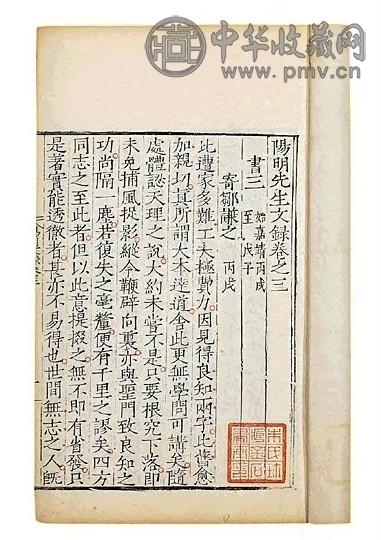 中华收藏网
www.pmv.cn
陽明先生文録卷之三
書三 始嘉靖丙戌
至戊子
寄鄒謙之 丙戌
此遭家多難工夫極費力因見得良知兩字比舊愈
加親切真所謂大本達道舍此更無學問可講矣隨
處體認天理之説大約未嘗不是只要根究下落即
未免捕風捉影縱令鞭辟向裏亦與聖門致良知之
功尚隔一塵若復失之毫釐便有千里之謬矣四方
同志之至此者但以此意提掇之無不即有省發只
是著實能透徹者甚亦不易得也世間無志之人既